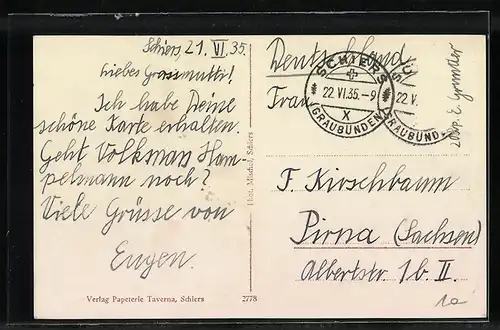 Schiers, 21. VI. 35.
Liebes Grossmutti!
Ich habe Deine
schöne Karte erhalten.
Geht Volkman Ham-
pelmann noch?
Viele Grüsse von
Eugen.
Verlag Papeterie Taverna, Schiers
2778
Phot. Mischol, Schiers
Deutschland
SCHIERS
22.VI.35.-9
X
(GRAUBÜNDEN)
22.V
Frau
F. Kirschbaum
Pirna (Sachsen)
Albertstr. 1b. II.
1a